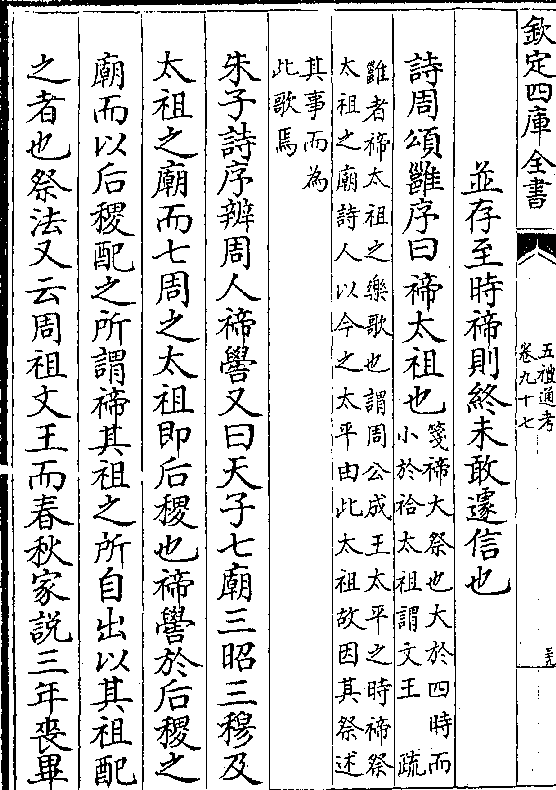 欽定四庫全書
五禮通考
卷九十七
並存至時禘則終未敢遽信也
詩周頌雝序曰禘太祖也
箋禘大祭也大於四時而
小於祫太祖謂文王　疏
雝者禘太祖之樂歌也謂周公成王太平之時禘祭
太祖之廟詩人以今之太平由此太祖故因其祭述
其事而為
此歌焉
朱子詩序辨周人禘嚳又曰天子七廟三昭三穆及
太祖之廟而七周之太祖即后稷也禘嚳於后稷之
廟而以后稷配之所謂禘其祖之所自出以其祖配
之者也祭法又云周祖文王而春秋家説三年喪畢